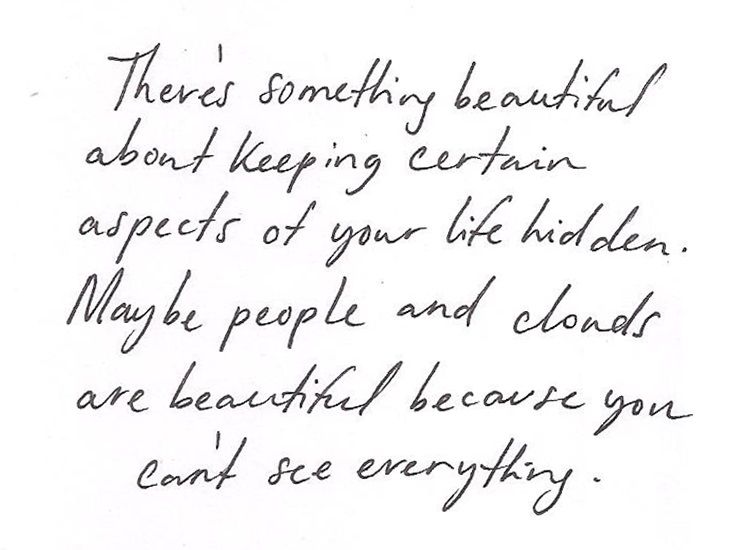 There's something beautiful
about keeping certain
aspects of your life hidden.
Maybe people and clouds
are beautiful because you
can't see everything.